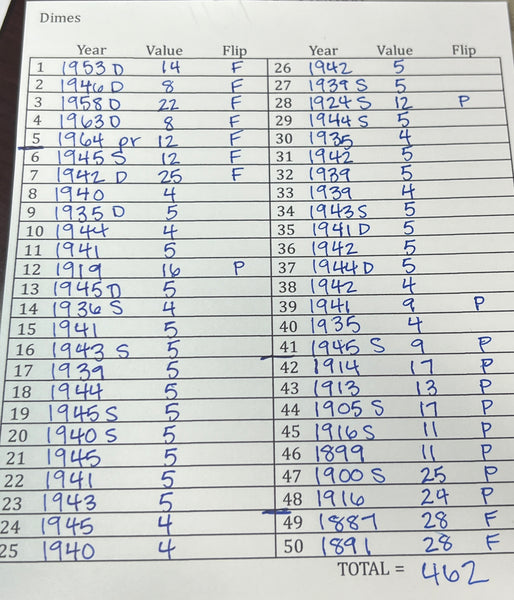 Dimes
Year Value Flip
1 1953 D 14 F
2 1946 D 8 F
3 1958 D 22 F
4 1963 D 8 F
5 1964 pr 12 F
6 1945 S 12 F
7 1942 D 25 F
8 1940 4
9 1935 D 5
10 1944 4
11 1941 5
12 1919 16 P
13 1945 D 5
14 1936 S 4
15 1941 5
16 1943 S 5
17 1939 5
18 1944 5
19 1945 S 5
20 1940 S 5
21 1945 5
22 1941 5
23 1943 5
24 1945 4
25 1940 4
Year Value Flip
26 1942 5
27 1939 S 5
28 1924 S 12 P
29 1944 S 5
30 1935 4
31 1942 5
32 1939 5
33 1939 4
34 1943 S 5
35 1941 D 5
36 1942 5
37 1944 D 5
38 1942 4
39 1941 9 P
40 1935 4
41 1945 S 9 P
42 1914 17 P
43 1913 13 P
44 1905 S 17 P
45 1916 S 11 P
46 1899 11 P
47 1900 S 25 P
48 1916 24 P
49 1887 28 F
50 1891 28 F
TOTAL = 462